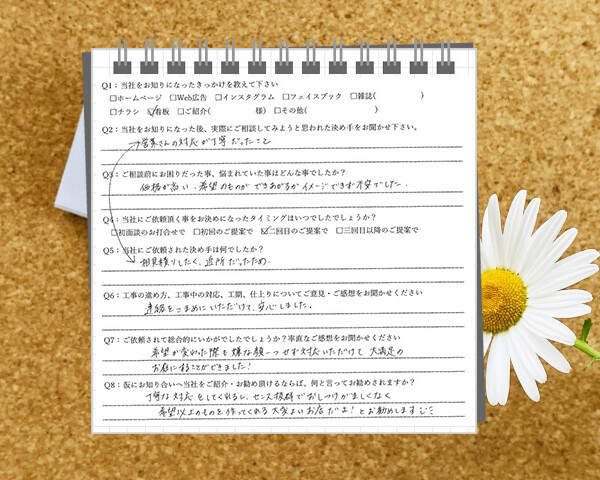 Q1：当社をお知りになったきっかけを教えて下さい
□ホームページ　□Web広告　□インスタグラム　□フェイスブック　□雑誌(　　　　　)
□チラシ　☑看板　□ご紹介(　　　　　様)　□その他(　　　　　　　)
Q2：当社をお知りになった後、実際にご相談してみようと思われた決め手をお聞かせ下さい。
営業さんの対応が丁寧だったこと
Q3：ご相談前にお困りだった事、悩まれていた事はどんな事でしたか？
価格が高い、希望のものができあがるかイメージできず不安でした。
Q4：当社にご依頼頂く事をお決めになったタイミングはいつでしたでしょうか？
□初面談のお打合せで　□初回のご提案で　☑二回目のご提案で　□三回目以降のご提案で
Q5：当社にご依頼された決め手は何でしたか？
相見積りしたく、近所だったため.
Q6：工事の進め方、工事中の対応、工期、仕上りについてご意見・ご感想をお聞かせください
連絡をこまめにいただけて、安心しました。
Q7：ご依頼されて総合的にいかがでしたでしょうか？率直なご感想をお聞かせください
希望が変わった際も嫌な顔一つせず対応いただけて 大満足の
お店にすることができました！
Q8：仮にお知り合いへ当社をご紹介・お勧め頂けるならば、何と言ってお勧めされますか？
丁寧な対応をしてくれるし、センス抜群でおしつけがましくなく
希望以上のものを作ってくれる大変よいお店だよ！とお勧めします